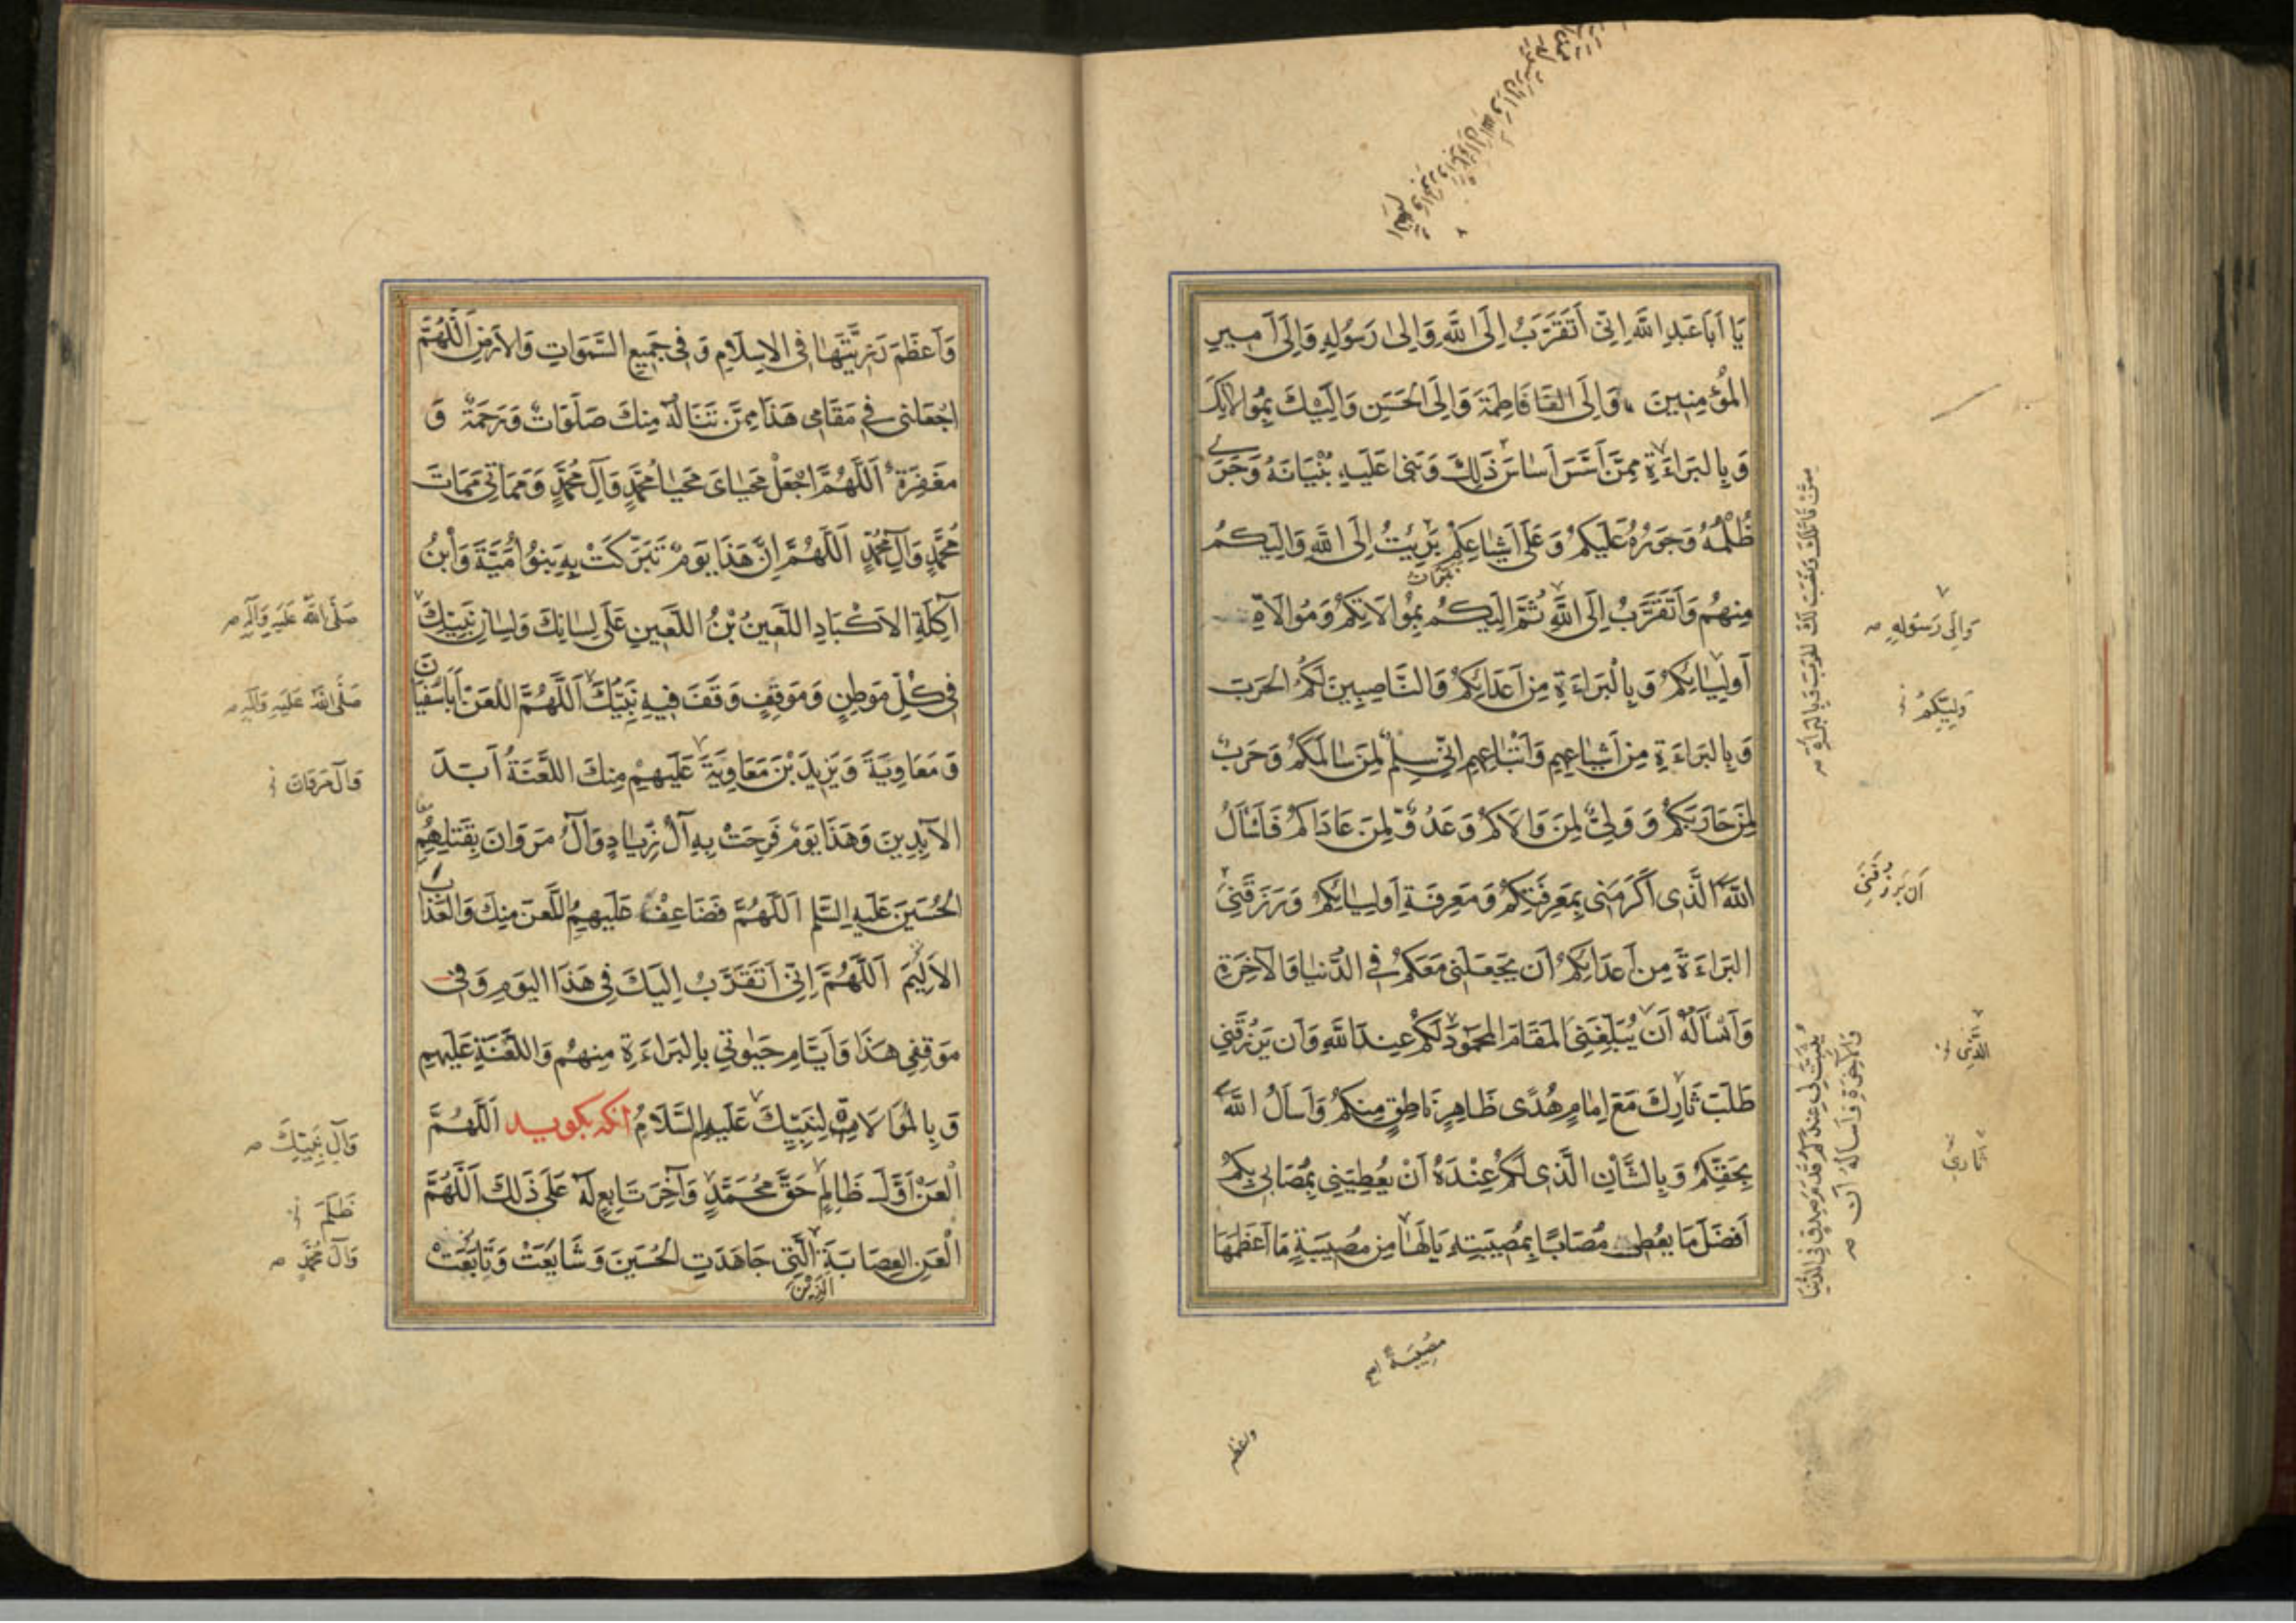 يَا اَبَا عَبْدِ اللَّهِ اِنِّي اَتَقَرَّبُ اِلَى اللَّهِ وَاِلىٰ رَسُولِهِ وَاِلَى اَمِيرِ
المُؤْمِنِينَ وَاِلَى فَاطِمَةَ وَاِلَى الحَسَنِ وَاِلَيْكَ بِمُوالاتِكَ
وَ بِالبَرَاءَةِ مِمَّنْ اَسَّسَ اَسَاسَ ذَلِكَ وَبَنى عَلَيهِ بُنْيَانَهُ وَجَرَى
ظُلْمُهُ وَجَوْرُهُ عَلَيكُمْ وَعَلَى اَشْيَاعِكُمْ بَرِئْتُ اِلَى اللَّهِ وَاِلَيكُمْ
مِنهُمْ وَاَتَقَرَّبُ اِلَى اللَّهِ ثُمَّ اِلَيكُمْ بِمُوالاتِكُمْ وَمُوَالاةِ
اَولِيَائِكُمْ وَ بِالْبَرَاءَةِ مِنْ اَعدَائِكُمْ وَالنَّاصِبِينَ لَكُمُ الحَربَ
وَ بِالبَرَاءَةِ مِن اَشيَاعِهِم وَاَتْبَاعِهِم اِنِّي سِلْمٌ لِمَن سَالَمَكُمْ وَحَربٌ
لِمَنْ حَارَبَكُمْ وَ وَلِيٌّ لِمَن وَالاكُمْ وَعَدُوٌّ لِمَن عَادَاكُمْ فَاَسْاَلُ
اللَّهَ الَّذِي اَكْرَمَنِي بِمَعرِفَتِكُمْ وَمَعرِفَةِ اَولِيَائِكُمْ وَرَزَقَنِي
البَرَاءَةَ مِن اَعدَائِكُمْ اَن يَجعَلَنِي مَعَكُمْ فِي الدُّنيَا وَالآخِرَةِ
وَاَسْاَلُهُ اَنْ يُبَلِّغَنِي المَقَامَ المَحمُودَ لَكُمْ عِندَ اللَّهِ وَاَن يَرْزُقَنِي
طَلَبَ ثَارِكَ مَعَ اِمَامٍ هُدًى ظَاهِرٍ نَاطِقٍ مِنكُمْ وَاَسْاَلُ اللَّهَ
بِحَقِّكُمْ وَ بِالشَّاْنِ الَّذِي لَكُمْ عِنْدَهُ اَنْ يُعْطِيَنِي بِمُصَابِي بِكُمْ
اَفضَلَ مَا يُعْطِي مُصَابًا بِمُصِيبَتِهِ يَا لَهَا مِن مُصِيبَةٍ مَا اَعظَمَهَا
وَاِلَى رَسُولِهِ صح
وَلِيِّكُمْ
اَن يَرْزُقَنِي
مُصِيبَةً
واعظم
وَاَعظَمَ رَزِيَّتَهَا فِي الاِسلَامِ وَ فِي جَمِيعِ السَّمَوَاتِ وَالاَرضِ اَللَّهُمَّ
اجْعَلنِي فِي مَقَامِي هَذَا مِمَّنْ تَنَالُهُ مِنكَ صَلَوَاتٌ وَرَحمَةٌ وَ
مَغْفِرَةٌ اَللَّهُمَّ اجْعَلْ مَحيَايَ مَحيَا مُحَمَّدٍ وَآلِ مُحَمَّدٍ وَمَمَاتِي مَمَاتَ
مُحَمَّدٍ وَآلِ مُحَمَّدٍ اَللَّهُمَّ اِنَّ هَذَا يَومٌ تَبَرَّكَتْ بِهِ بَنُو اُمَيَّةَ وَابْنُ
آكِلَةِ الاَكْبَادِ اللَّعِينُ بْنُ اللَّعِينِ عَلَى لِسَانِكَ وَلِسَانِ نَبِيِّكَ
فِي كُلِّ مَوطِنٍ وَمَوقِفٍ وَقَفَ فِيهِ نَبِيُّكَ اَللَّهُمَّ الْعَنْ اَبَا سُفيَانَ
وَ مَعَاوِيَةَ وَيَزِيدَ بْنَ مَعَاوِيَةَ عَلَيهِمْ مِنكَ اللَّعْنَةُ اَبَدَ
الآبِدِينَ وَهَذَا يَومٌ فَرِحَتْ بِهِ آلُ زِيَادٍ وَآلُ مَروَانَ بِقَتلِهِمُ
الحُسَينَ عَلَيهِ السَّلم اَللَّهُمَّ فَضَاعِفْ عَلَيهِمُ اللَّعنَ مِنكَ وَالعَذَابَ
الاَلِيمَ اَللَّهُمَّ اِنِّي اَتَقَرَّبُ اِلَيكَ فِي هَذَا اليَومِ وَ فِي
مَوقِفِي هَذَا وَاَيَّامِ حَيٰوتِي بِالبَرَاءَةِ مِنهُم وَاللَّعْنَةِ عَلَيهِم
وَ بِالمُوَالَاةِ لِنَبِيِّكَ عَلَيهِ السَّلَامُ انكه بكويد اَللَّهُمَّ
الْعَنْ اَوَّلَ ظَالِمٍ حَقَّ مُحَمَّدٍ وَآخِرَ تَابِعٍ لَهُ عَلَى ذَلِكَ اَللَّهُمَّ
الْعَنِ العِصَابَةَ الَّتِي جَاهَدَتِ الحُسَينَ وَشَايَعَتْ وَتَابَعَتْ
الَّذِينَ
صَلَّى اللَّهُ عَلَيهِ وَآلِهِ صح
صَلَّى اللَّهُ عَلَيهِ وَآلِهِ صح
وَآلِ نَبِيِّكَ صح
ظَلَمَ
وَآلِ مُحَمَّدٍ صح